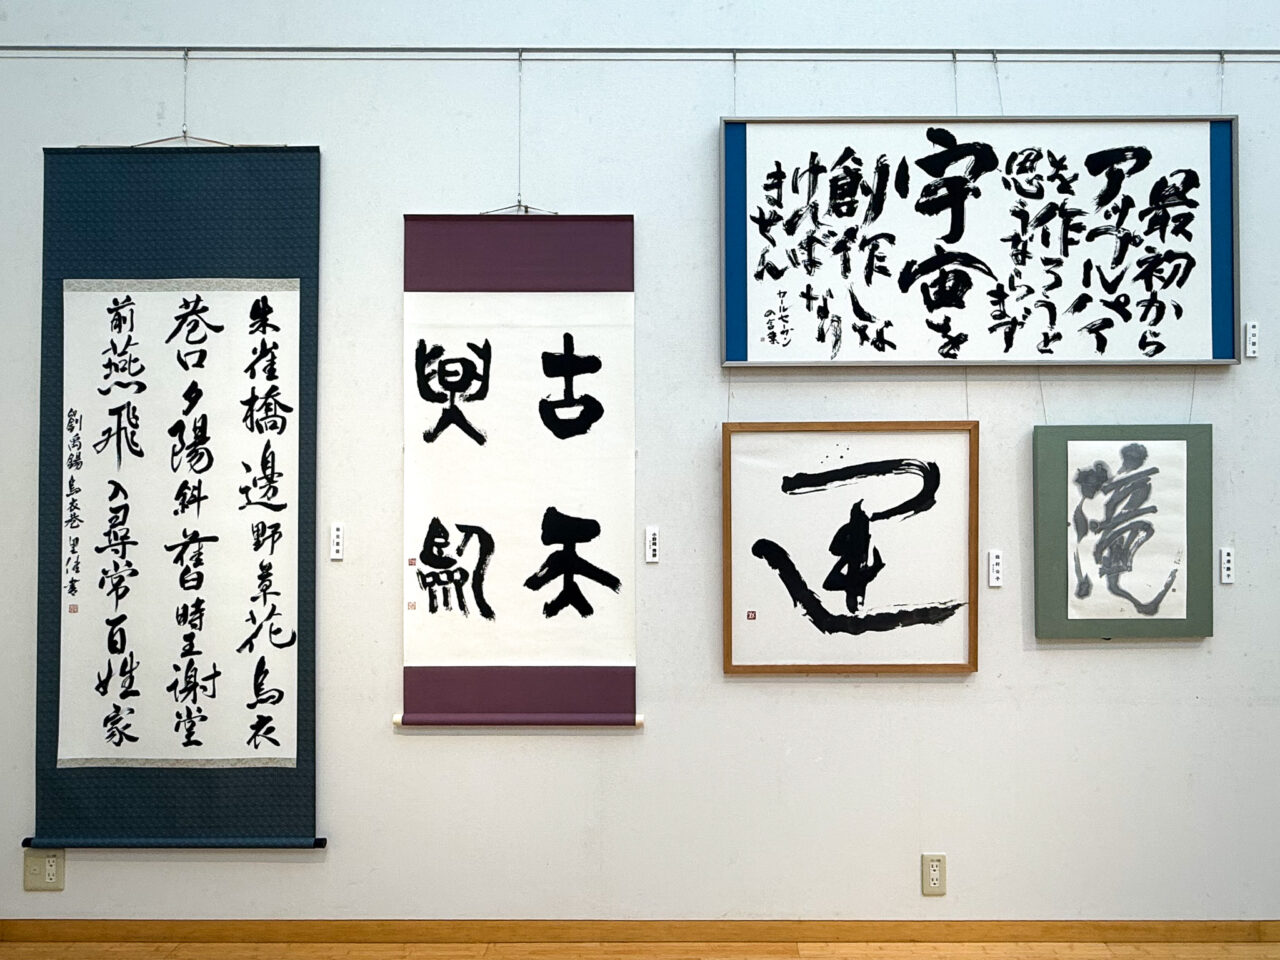 朱雀橋邊野草花烏衣
巷口夕陽斜舊時王謝堂
前燕飛入尋常百姓家
劉禹錫烏衣巷
古
最初から
アップルパイ
を作ろうと
思うならまず
宇宙を
創作しな
ければなり
ません
カールセーガン
の言葉
運
滝